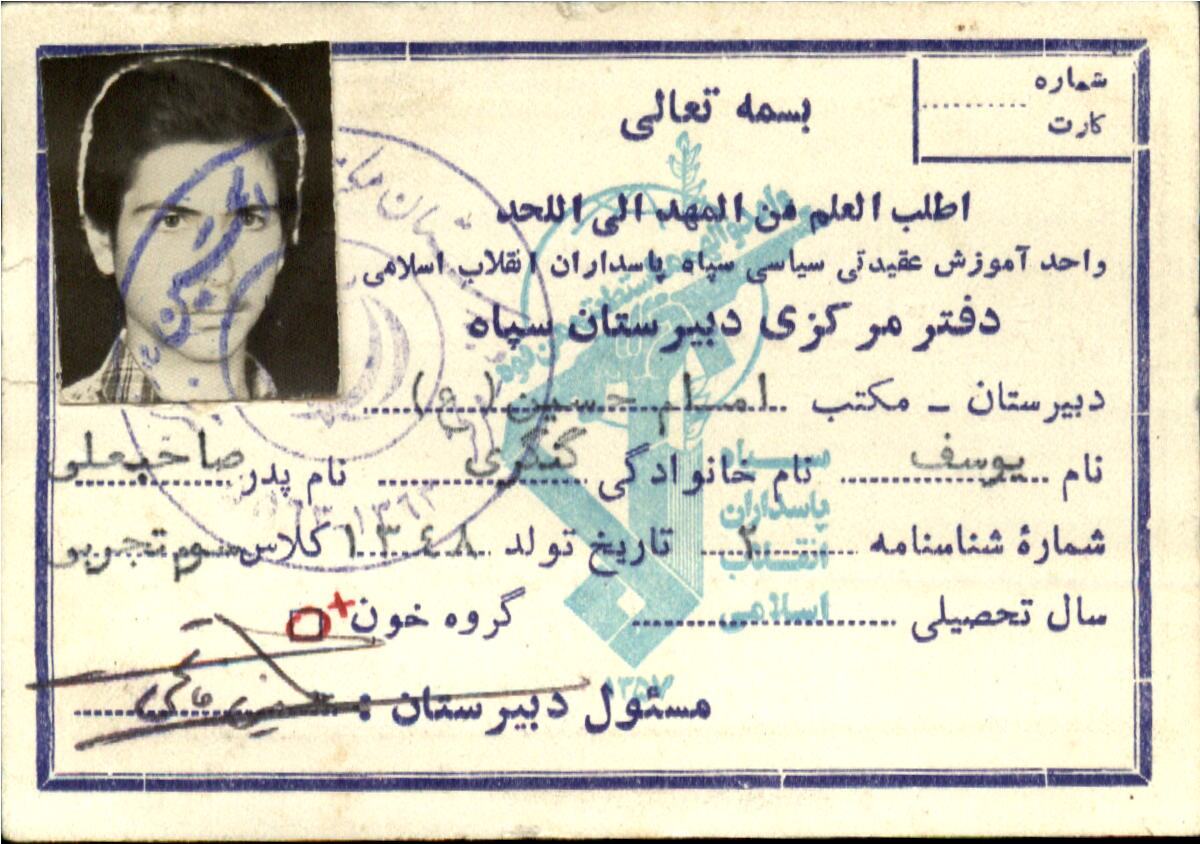 شماره
کارت
بسمه تعالی
اطلب العلم من المهد الی اللحد
واحد آموزش عقیدتی سیاسی سپاه پاسداران انقلاب اسلامی
دفتر مرکزی دبیرستان سپاه
دبیرستان - مکتب امام حسین (ع)
نام یوسف نام خانوادگی کنگری نام پدر صاحبعلی
شمارهٔ شناسنامه ۲ تاریخ تولد ۱۳۴۸ کلاس سوم تجربی
سال تحصیلی گروه خون O+
مسئول دبیرستان :
سپاه
پاسداران
انقلاب
اسلامی
۱۳۵۷